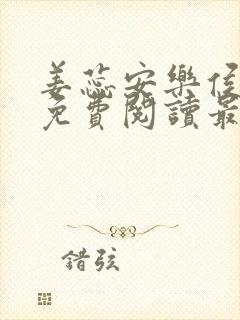 姜蕊安樂侯
免費閱讀最
錯弦